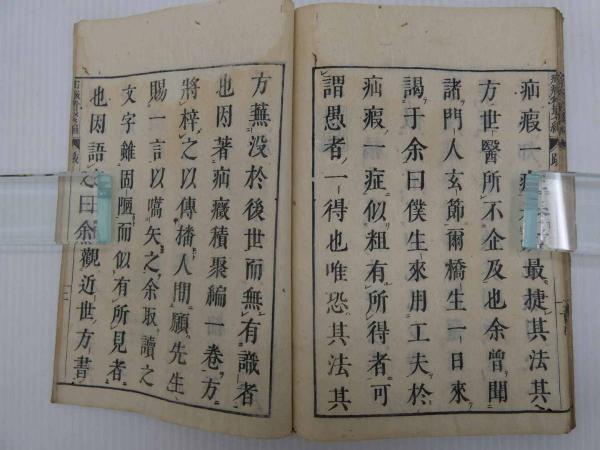 疝瘕一最捷其法其
方世醫所不企及也余曾聞
諸門人玄節爾橋生一日來
謁于余曰僕生來用工夫於
疝瘕一症似粗有所得者可
謂愚者一得也唯恐其法其
方蕪没於後世而無有識者
也因著疝癥積聚編一卷方
將梓之以傳播人間願先生
賜一言以嚆矢之余取讀之
文字雖固陋而似有所見者
也因語之曰余觀近世方書